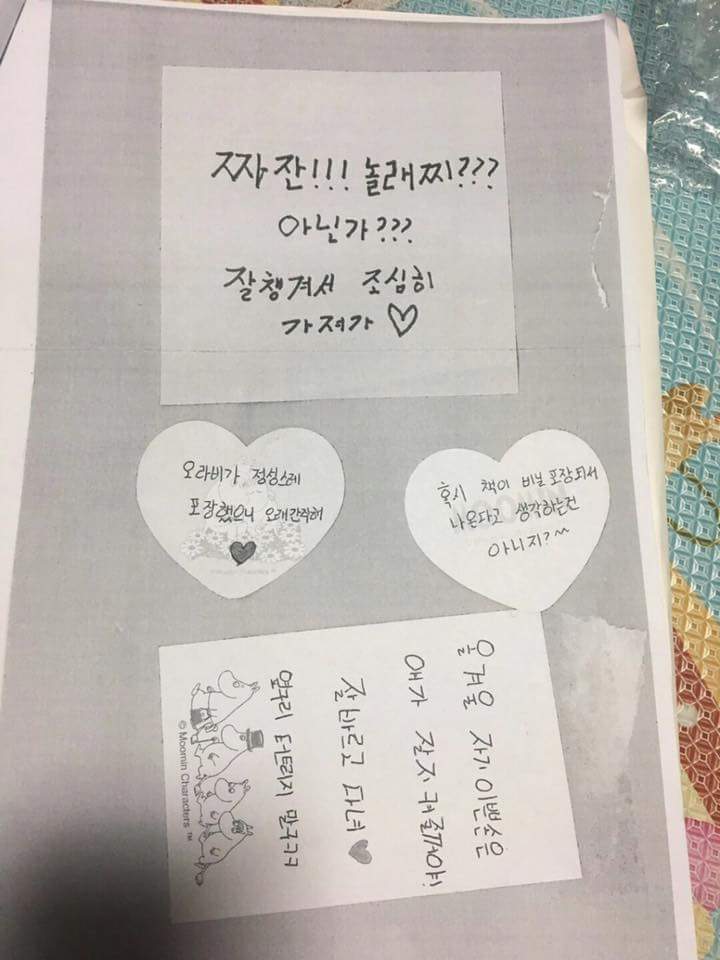 짜잔!!! 놀래찌???
아닌가???
잘챙겨서 조심히
가져가 ♡
오라비가 정성스레
포장했으니 오래간직해
♥
혹시 책이 비닐포장되서
나온다고 생각하는건
아니지?~
올겨울 자기이쁜손은
얘가 잘지켜줄꺼야!
잘바르고 다녀 ♥
옆구리 터트리지 말구ㅋㅋ
© Moomin Characters ™